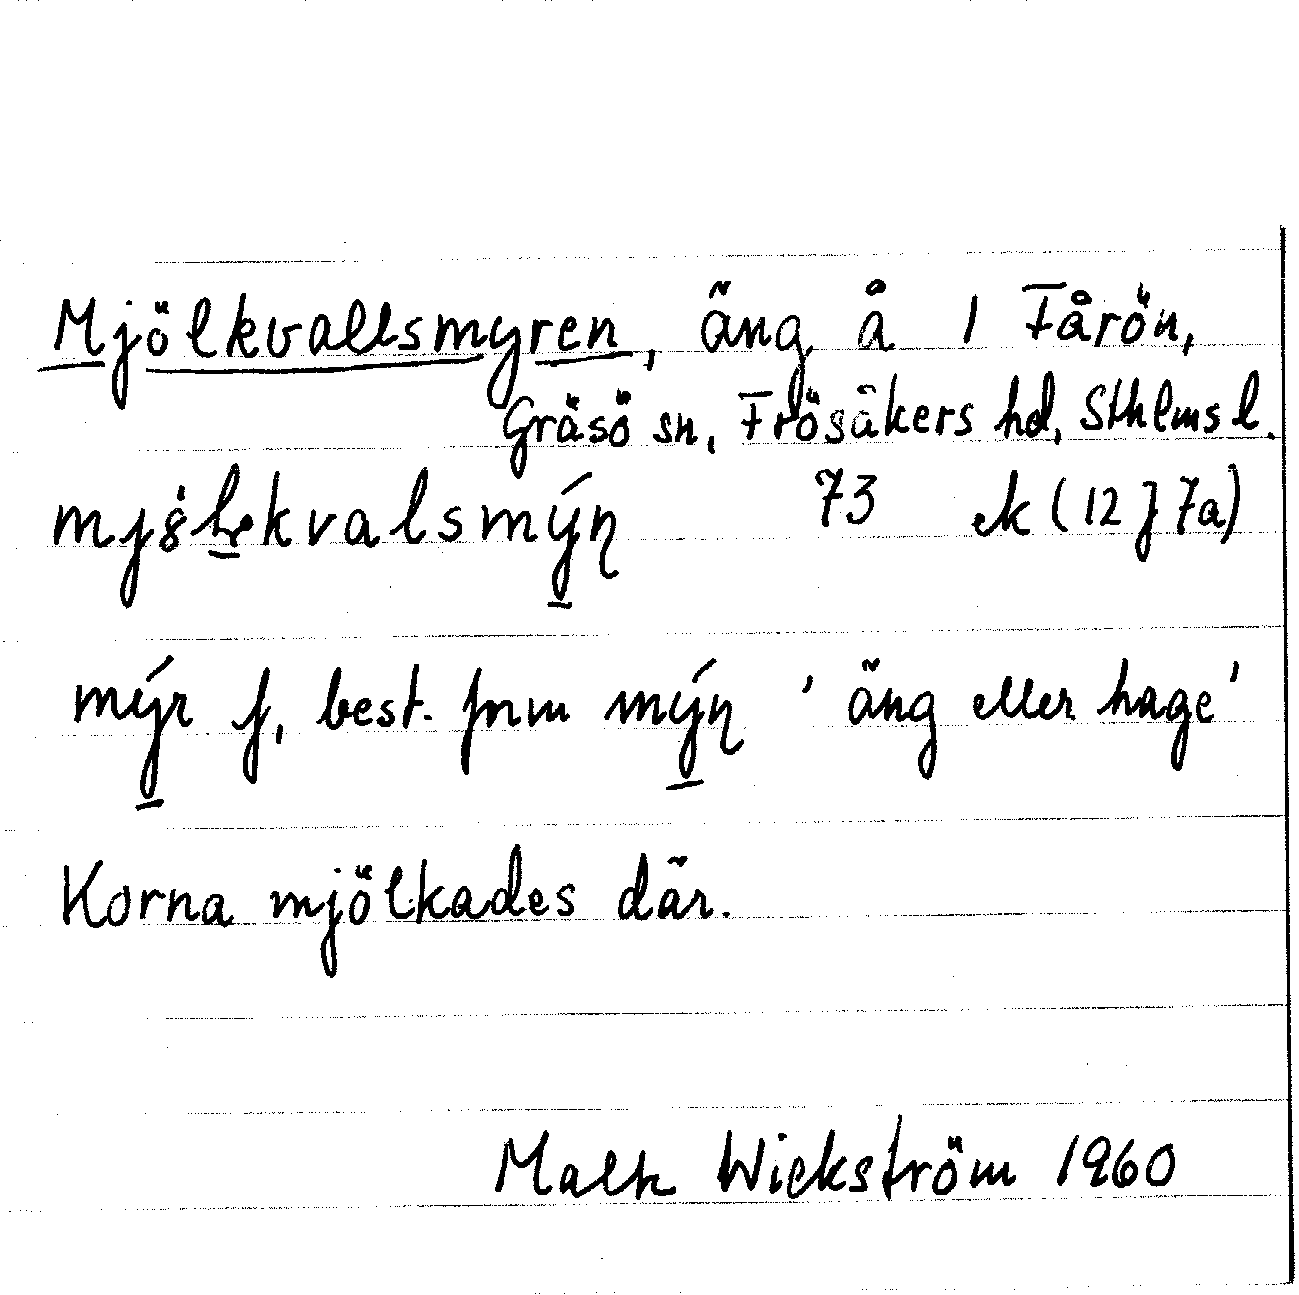 Mjölkvallsmyren, äng å 1 Fårön,
Gräsö sn, Frösåkers hd, Sthlms l.
kvalsmýn 73 ek (12 J 7a)
mýr f, best. form mýn 'äng eller hage'
Korna mjölkades där.
Wickström 1960